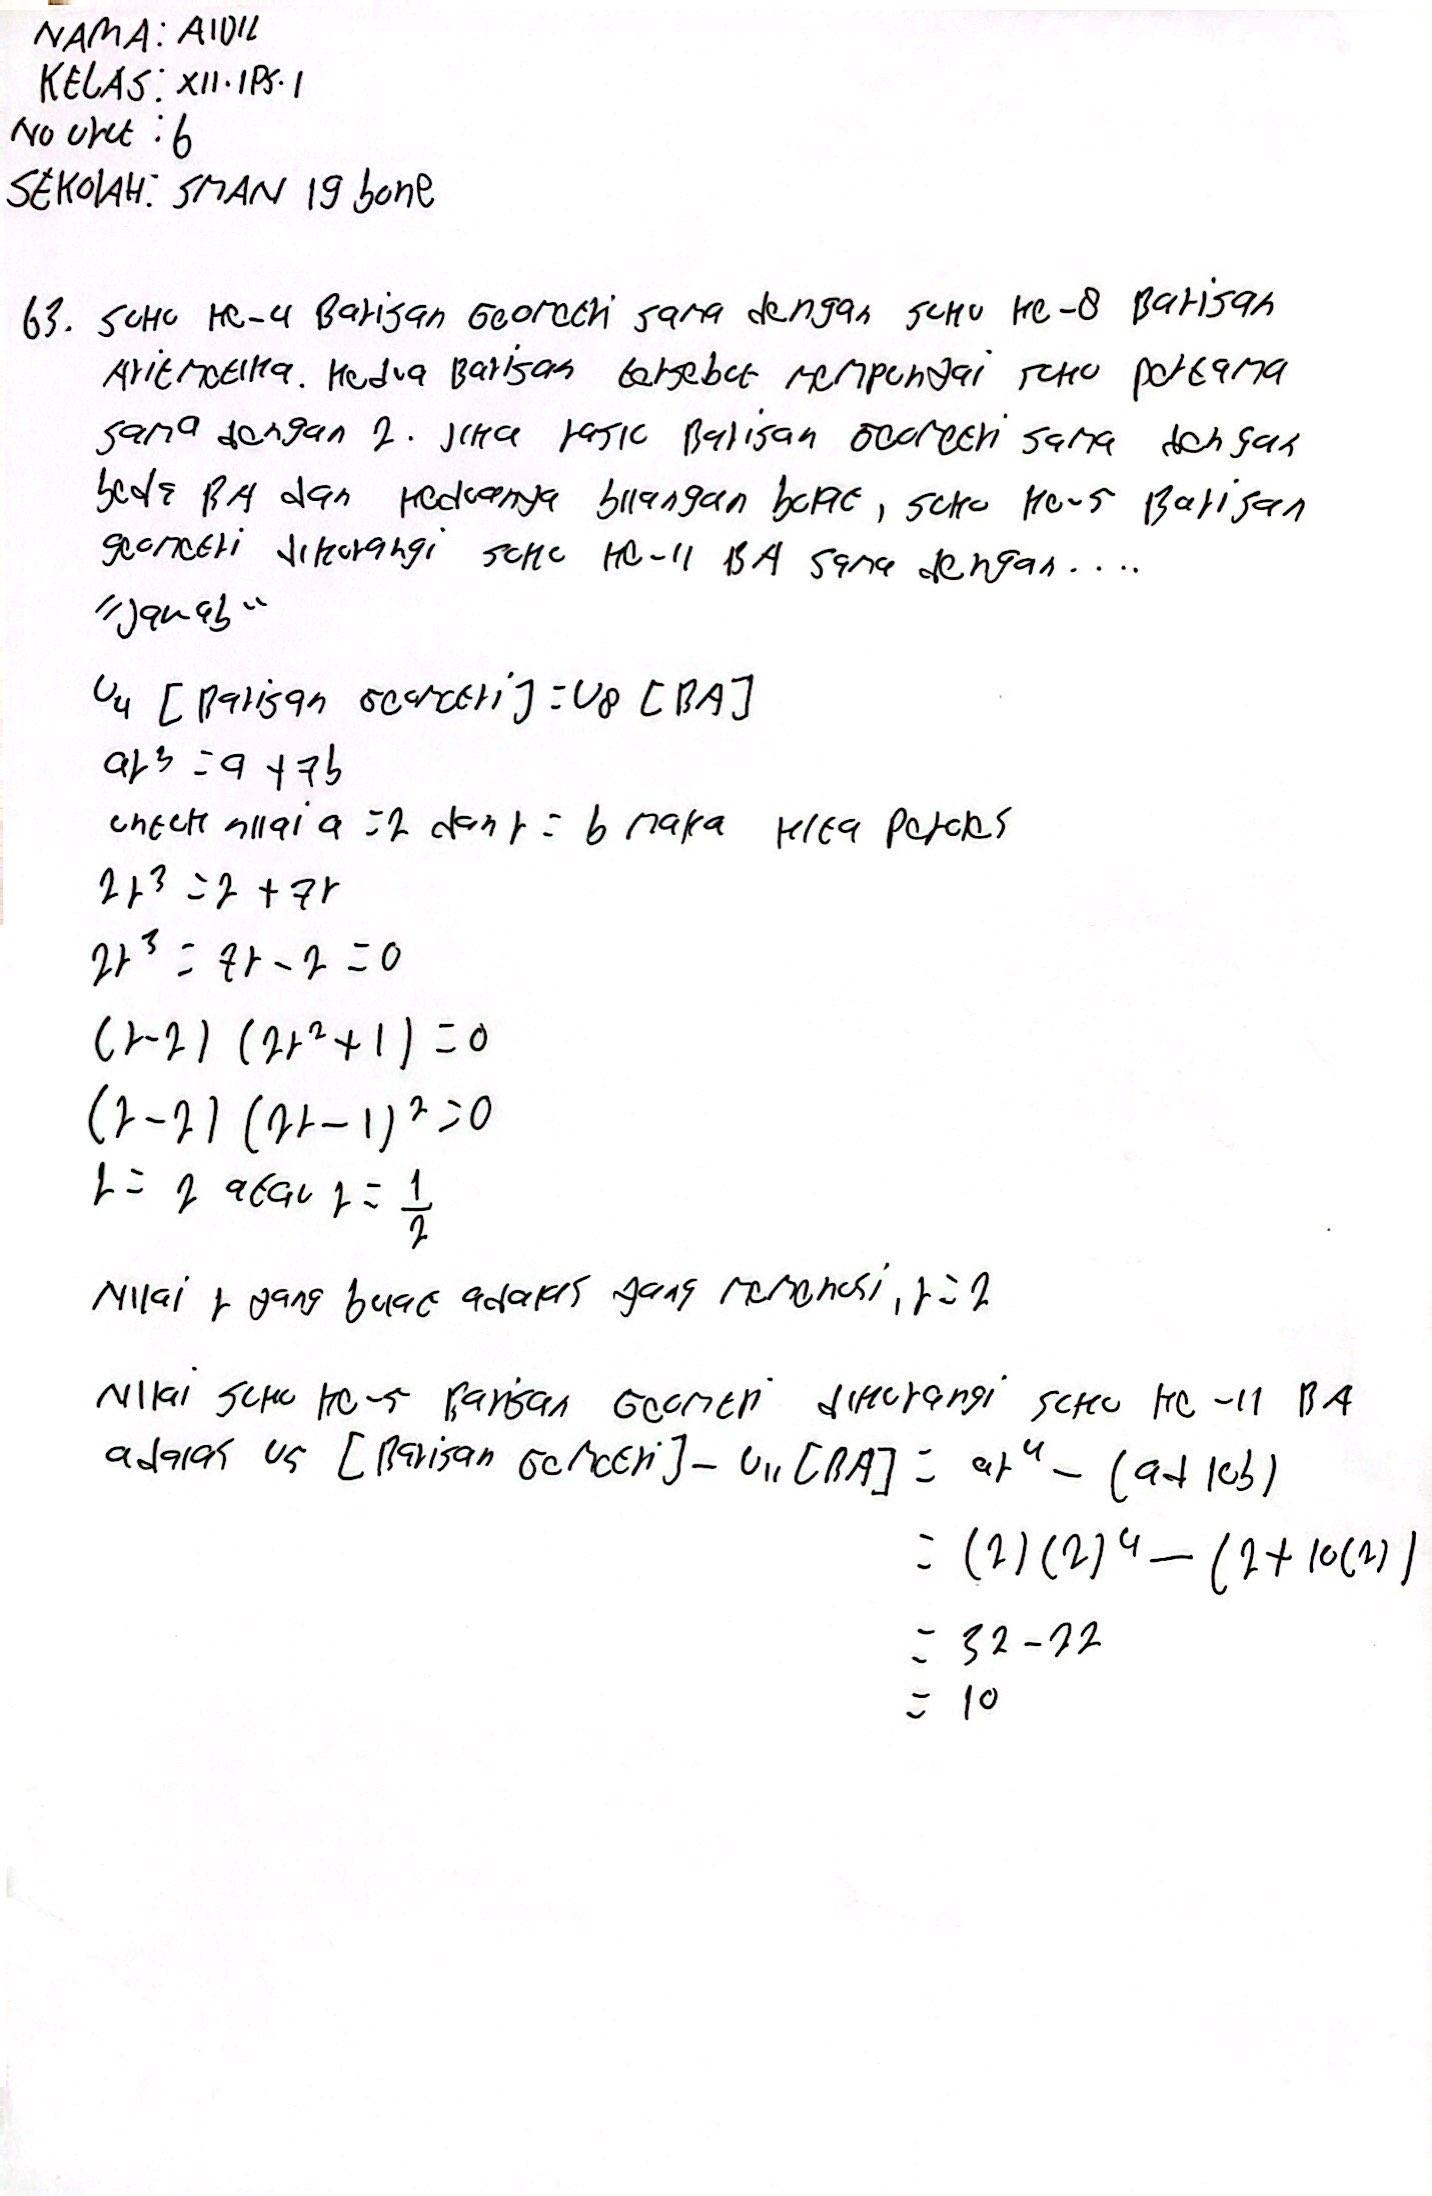 NAMA: AIDIL
KELAS: XII.IPS.1
No urut : 6
SEKOLAH: SMAN 19 bone
63. suku ke-4 Barisan Geometri sama dengan suku ke-8 Barisan
Aritmetika. kedua Barisan tersebut mempunyai suku pertama
sama dengan 2. Jika rasio Barisan Geometri sama dengan
beda BA dan keduanya bilangan bulat, suku ke-5 Barisan
geometri dikurangi suku ke-11 BA sama dengan....
"Jawab"
U4 [Barisan Geometri] = U8 [BA]
ar³ = a + 7b
untuk nilai a = 2 dan r = b maka kita peroleh
2r³ = 2 + 7r
2r³ = 7r - 2 = 0
(r-2) (2r²+1) = 0
(r-2) (2r-1)² = 0
r = 2 atau r = 1/2
Nilai r yang bulat adalah yang memenuhi, r = 2
Nilai suku ke-5 Barisan Geometri dikurangi suku ke-11 BA
adalah U5 [Barisan Geometri] - U11 [BA] = ar⁴ - (a+10b)
= (2)(2)⁴ - (2+10(2))
= 32-22
= 10